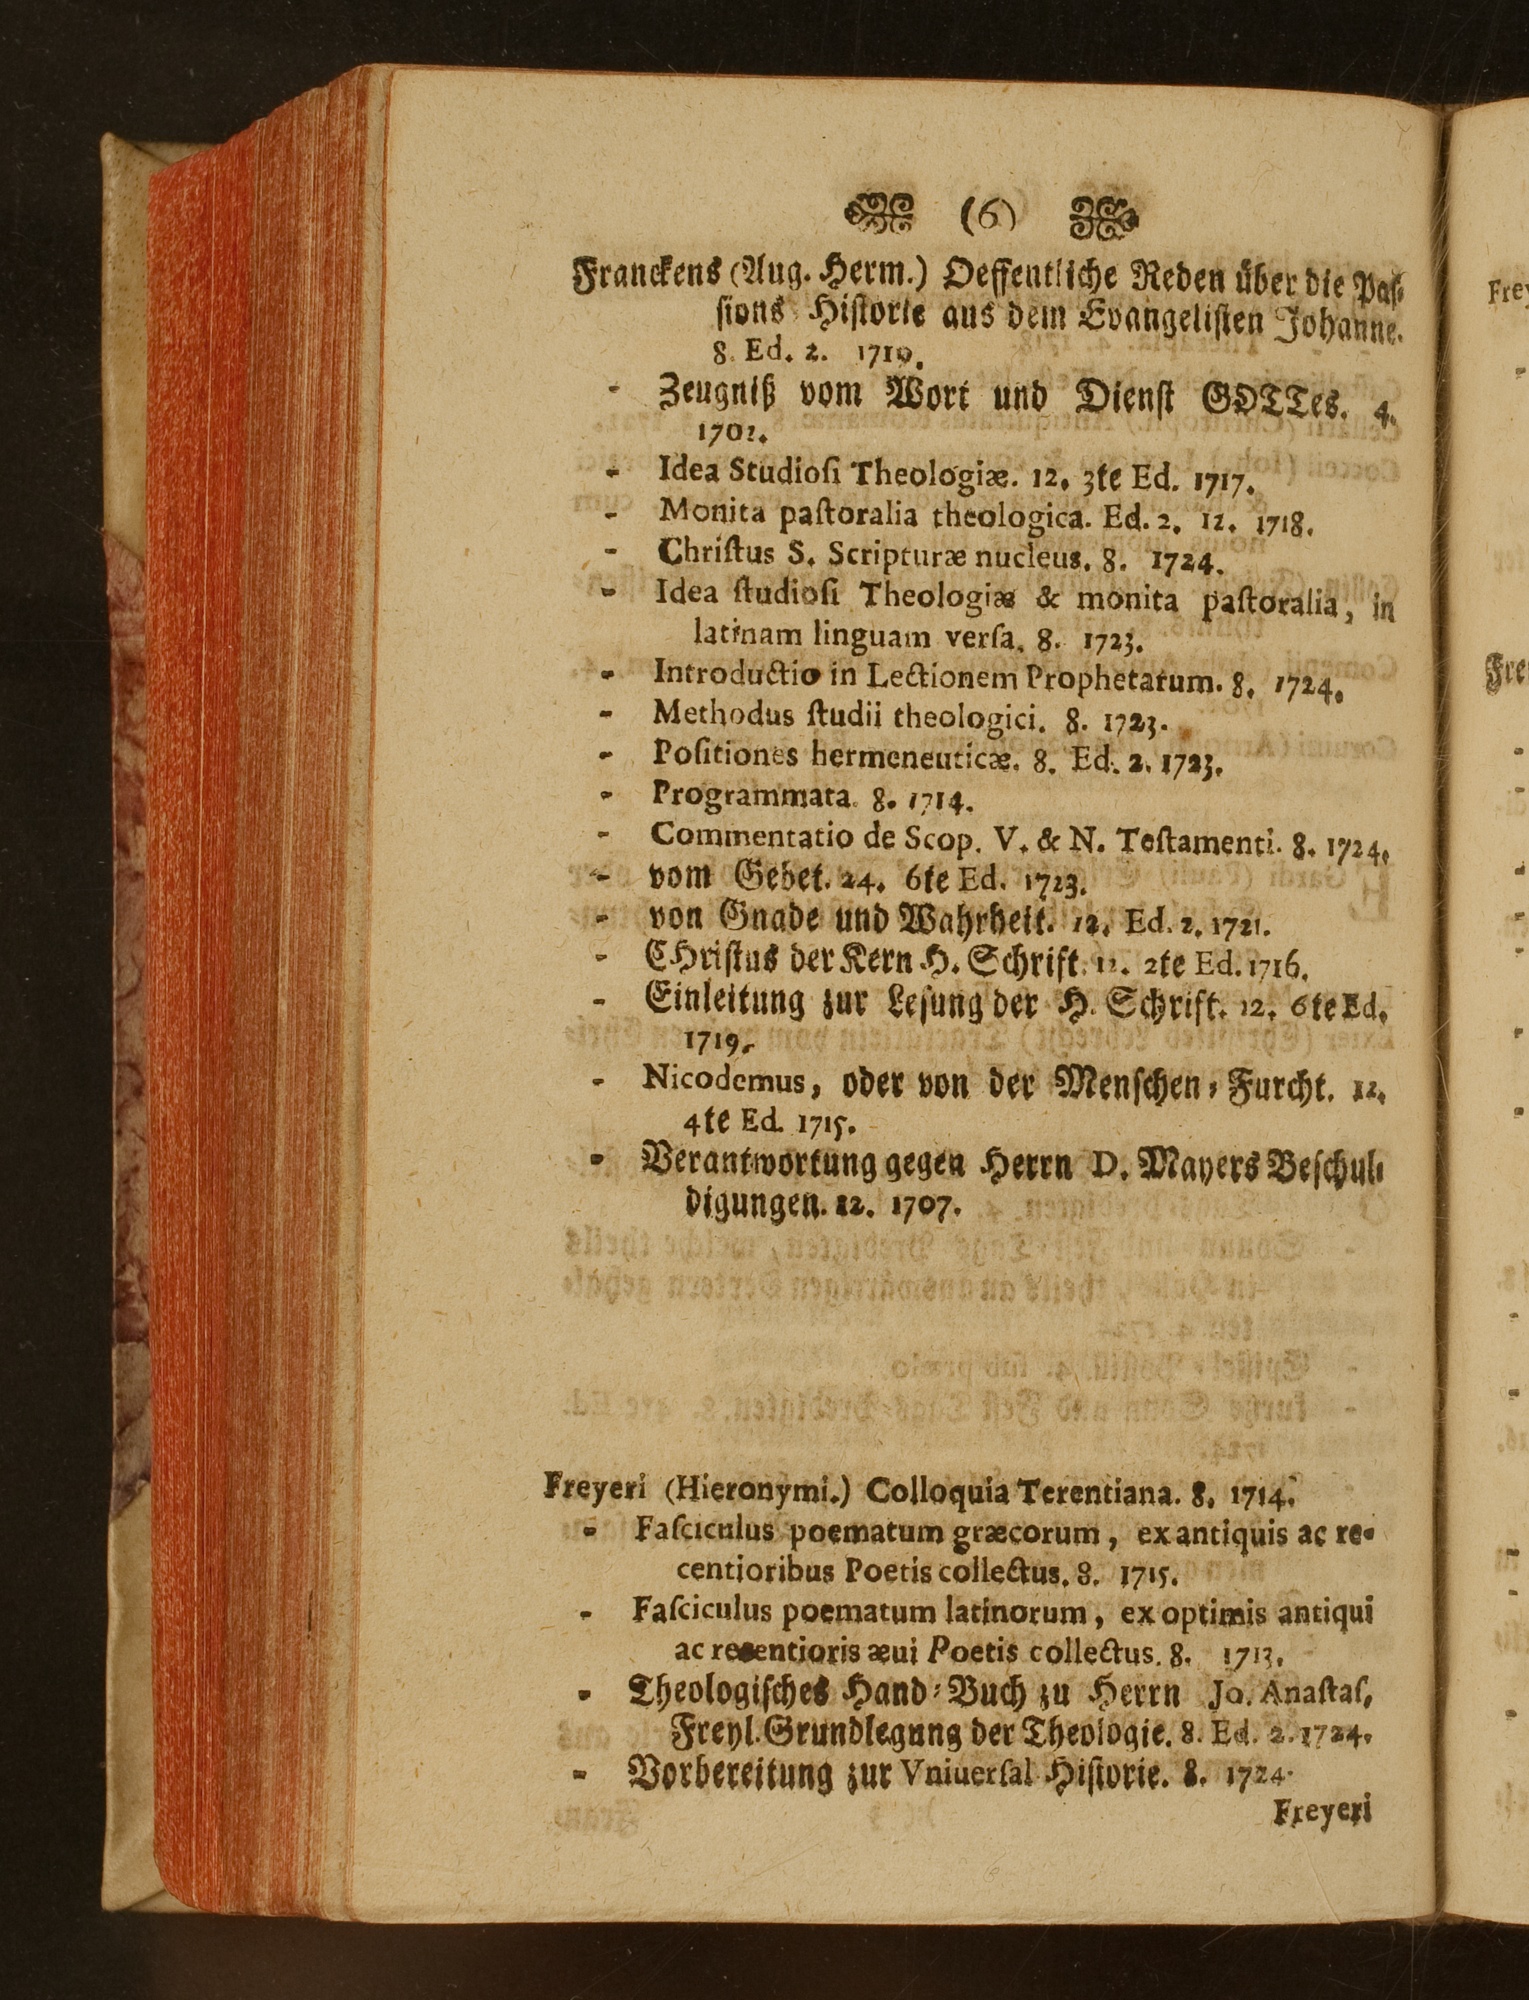 (6)
Franckens (Aug. Herm.) Oeffentliche Reden über die Paſ-
ſions Hiſtorie aus dem Evangeliſten Johanne.
8. Ed. 2. 1719.
- Zeugniß vom Wort und Dienſt GOTTes. 4.
1702.
- Idea Studioſi Theologiæ. 12. 3te Ed. 1717.
- Monita paſtoralia theologica. Ed. 2. 12. 1718.
- Chriſtus S. Scripturæ nucleus. 8. 1724.
- Idea ſtudioſi Theologiæ & monita paſtoralia, in
latinam linguam verſa. 8. 1723.
- Introductio in Lectionem Prophetarum. 8. 1724.
- Methodus ſtudii theologici. 8. 1723.
- Poſitiones hermeneuticæ. 8. Ed. 2. 1723.
- Programmata. 8. 1714.
- Commentatio de Scop. V. & N. Teſtamenti. 8. 1724.
- vom Gebet. 24. 6te Ed. 1723.
- von Gnade und Wahrheit. 12. Ed. 2. 1721.
- CHriſtus der Kern H. Schrift. 12. 2te Ed. 1716.
- Einleitung zur Leſung der H. Schrift. 12. 6te Ed.
1719.
- Nicodemus, oder von der Menſchen-Furcht. 12.
4te Ed. 1715.
- Verantwortung gegen Herrn D. Mayers Beſchul-
digungen. 12. 1707.
Freyeri (Hieronymi.) Colloquia Terentiana. 8. 1714.
- Faſciculus poematum græcorum, ex antiquis ac re-
centioribus Poetis collectus. 8. 1715.
- Faſciculus poematum latinorum, ex optimis antiqui
ac recentioris æui Poetis collectus. 8. 1713.
- Theologiſches Hand-Buch zu Herrn Jo. Anaſtaſ.
Freyl. Grundlegung der Theologie. 8. Ed. 2. 1724.
- Vorbereitung zur Vniuerſal Hiſtorie. 8. 1724.
Freyeri